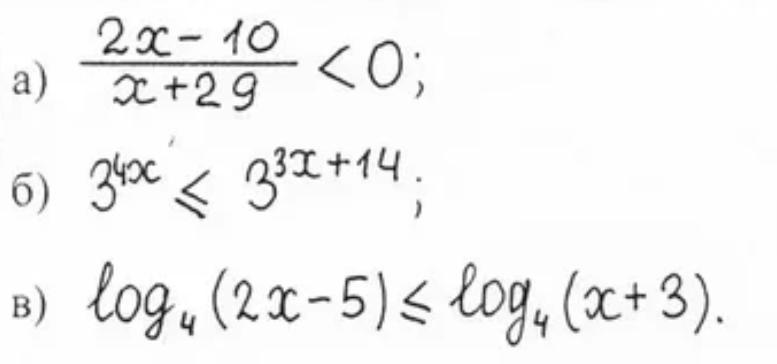 а) (2x - 10)/(x + 29) < 0;
б) 3^{4x} ≤ 3^{3x+14};
в) log₄(2x-5) ≤ log₄(x+3).